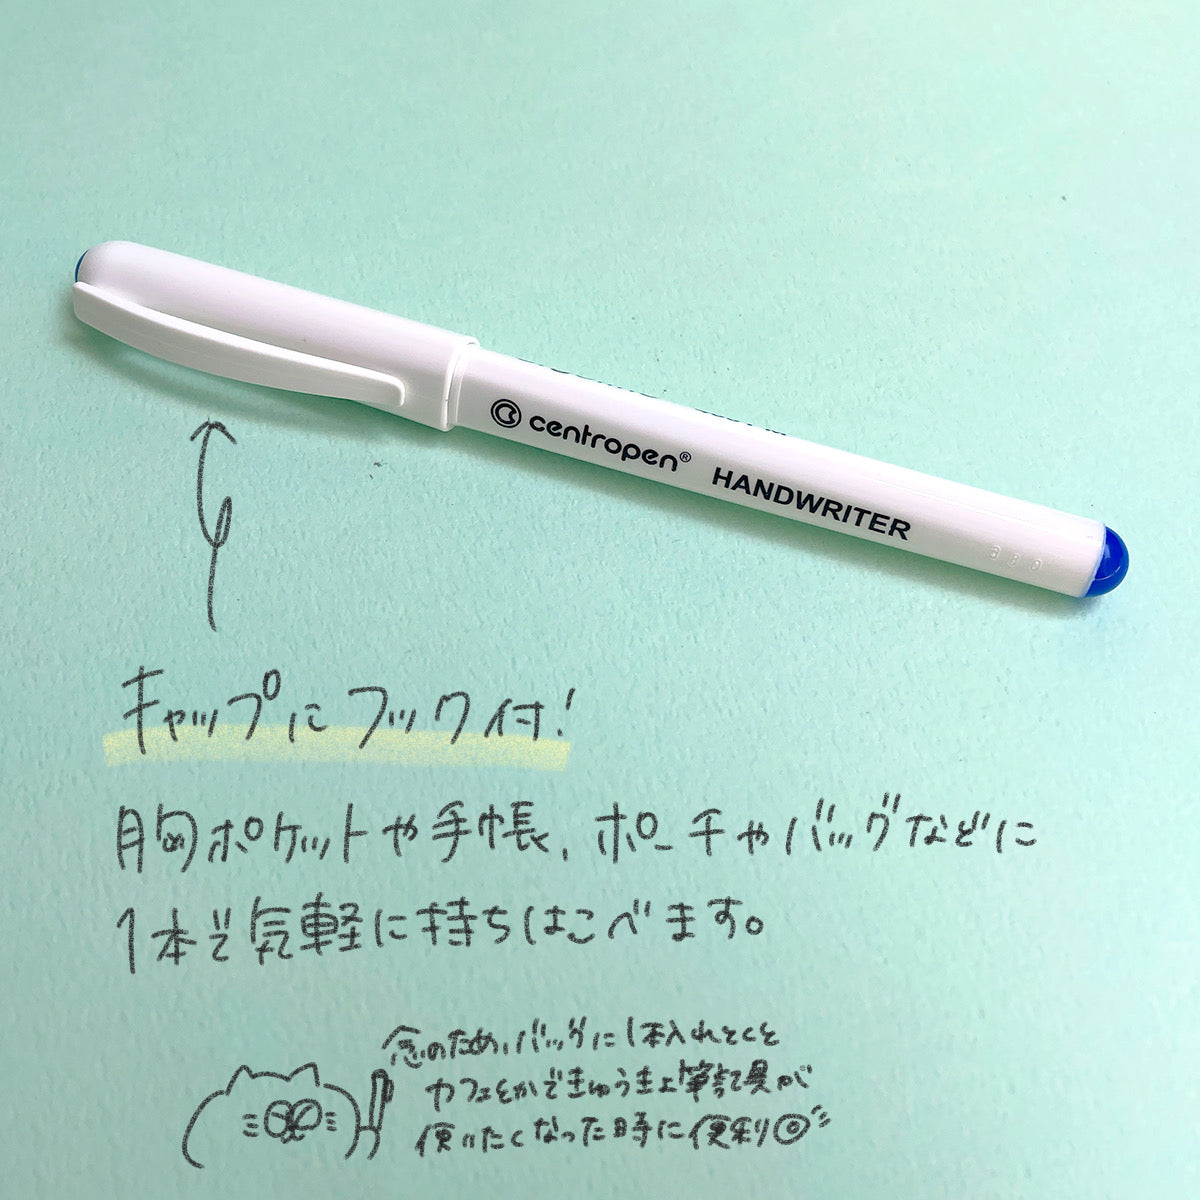 centropen® HANDWRITER
キャップにフック付!
胸ポケットや手帳、ポーチやバッグなどに
1本で気軽に持ちはこべます。
念のため、バッグに1本入れとくと
カフェとかできゅうきょ筆記具が
使いたくなった時に便利◎